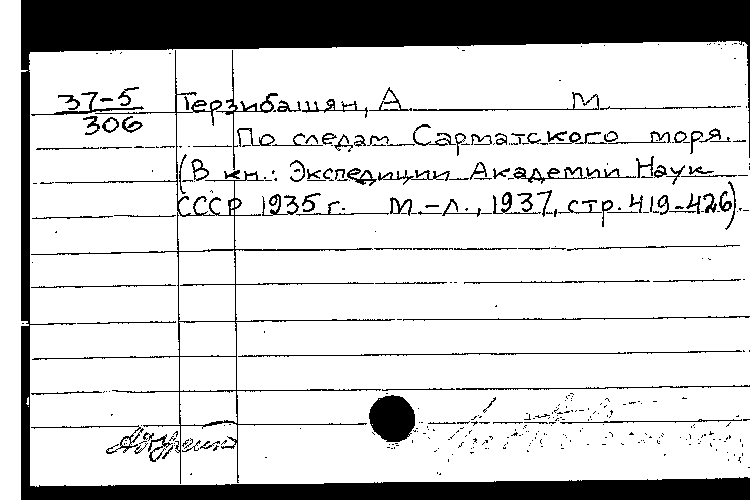 37-5 Терзибашян, А М
306
По следам Сарматского моря.
(В кн.: Экспедиции Академии Наук
СССР 1935 г. М.-Л., 1937, стр. 419-426).